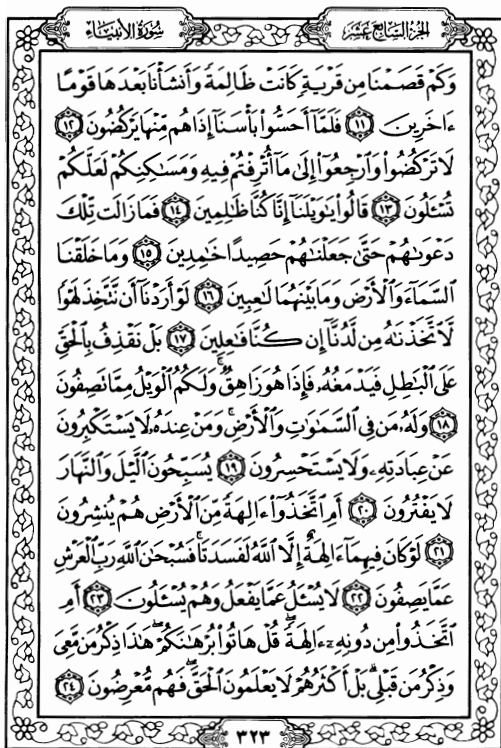 الجزء السابع عشر
سورة الأنبياء
وَكَمْ قَصَمْنَا مِن قَرْيَةٍ كَانَتْ ظَالِمَةً وَأَنشَأْنَا بَعْدَهَا قَوْمًا
ءَاخَرِينَ ۝١١ فَلَمَّآ أَحَسُّوا۟ بَأْسَنَآ إِذَا هُم مِّنْهَا يَرْكُضُونَ ۝١٢
لَا تَرْكُضُوا۟ وَٱرْجِعُوٓا۟ إِلَىٰ مَآ أُتْرِفْتُمْ فِيهِ وَمَسَـٰكِنِكُمْ لَعَلَّكُمْ
تُسْـَٔلُونَ ۝١٣ قَالُوا۟ يَـٰوَيْلَنَآ إِنَّا كُنَّا ظَـٰلِمِينَ ۝١٤ فَمَا زَالَت تِّلْكَ
دَعْوَىٰهُمْ حَتَّىٰ جَعَلْنَـٰهُمْ حَصِيدًا خَـٰمِدِينَ ۝١٥ وَمَا خَلَقْنَا
ٱلسَّمَآءَ وَٱلْأَرْضَ وَمَا بَيْنَهُمَا لَـٰعِبِينَ ۝١٦ لَوْ أَرَدْنَآ أَن نَّتَّخِذَ لَهْوًا
لَّٱتَّخَذْنَـٰهُ مِن لَّدُنَّآ إِن كُنَّا فَـٰعِلِينَ ۝١٧ بَلْ نَقْذِفُ بِٱلْحَقِّ
عَلَى ٱلْبَـٰطِلِ فَيَدْمَغُهُۥ فَإِذَا هُوَ زَاهِقٌ ۚ وَلَكُمُ ٱلْوَيْلُ مِمَّا تَصِفُونَ
۝١٨ وَلَهُۥ مَن فِى ٱلسَّمَـٰوَٰتِ وَٱلْأَرْضِ ۚ وَمَنْ عِندَهُۥ لَا يَسْتَكْبِرُونَ
عَنْ عِبَادَتِهِۦ وَلَا يَسْتَحْسِرُونَ ۝١٩ يُسَبِّحُونَ ٱلَّيْلَ وَٱلنَّهَارَ
لَا يَفْتُرُونَ ۝٢٠ أَمِ ٱتَّخَذُوٓا۟ ءَالِهَةً مِّنَ ٱلْأَرْضِ هُمْ يُنشِرُونَ
۝٢١ لَوْ كَانَ فِيهِمَآ ءَالِهَةٌ إِلَّا ٱللَّهُ لَفَسَدَتَا ۚ فَسُبْحَـٰنَ ٱللَّهِ رَبِّ ٱلْعَرْشِ
عَمَّا يَصِفُونَ ۝٢٢ لَا يُسْـَٔلُ عَمَّا يَفْعَلُ وَهُمْ يُسْـَٔلُونَ ۝٢٣ أَمِ
ٱتَّخَذُوا۟ مِن دُونِهِۦٓ ءَالِهَةً ۖ قُلْ هَاتُوا۟ بُرْهَـٰنَكُمْ ۖ هَـٰذَا ذِكْرُ مَن مَّعِىَ
وَذِكْرُ مَن قَبْلِى ۗ بَلْ أَكْثَرُهُمْ لَا يَعْلَمُونَ ٱلْحَقَّ ۖ فَهُم مُّعْرِضُونَ ۝٢٤
٣٢٣